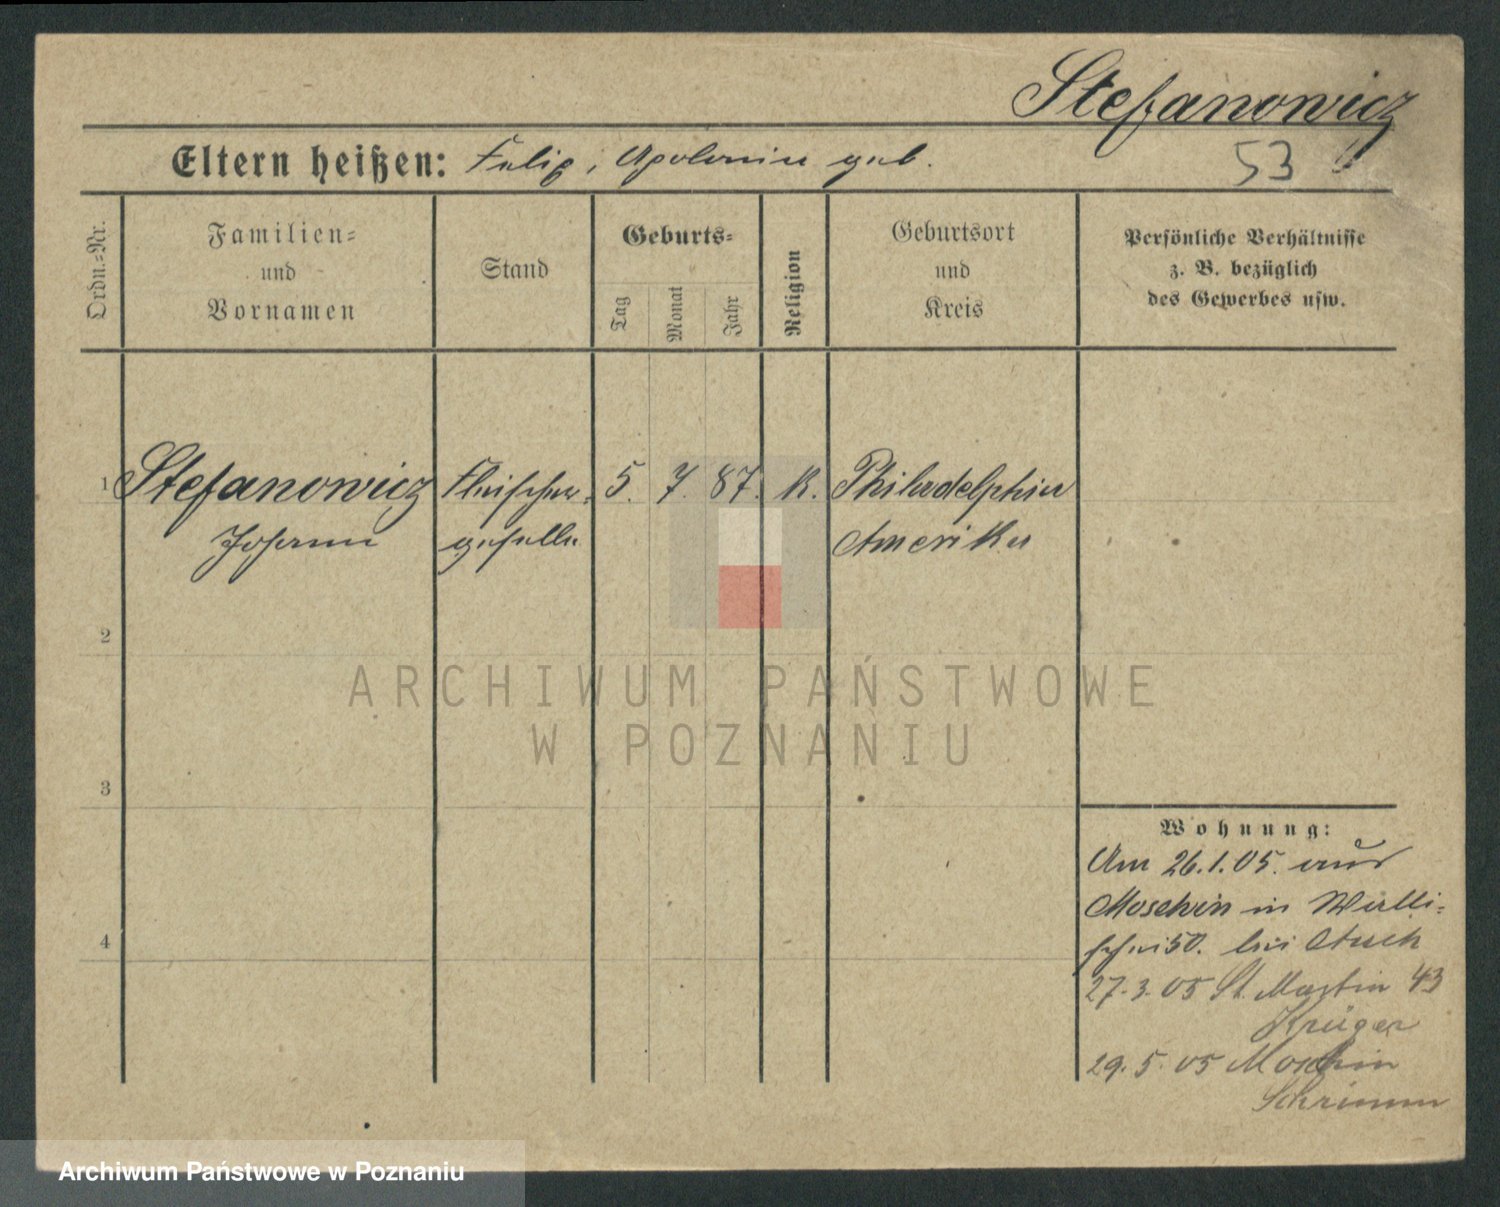 Stefanowicz
Eltern heißen: Felix, Apolonia geb.
53
Ordn.-Nr.
Familien-
und
Vornamen
Stand
Geburts-
Tag
Monat
Jahr
Religion
Geburtsort
und
Kreis
Persönliche Verhältnisse
z. B. bezüglich
des Gewerbes usw.
1 Stefanowicz Fleischer- 5. 7. 87. K. Philadelphia
Johann geselle Amerika
2
ARCHIWUM PAŃSTWOWE
W POZNANIU
3
Wohnung:
Am 26.1.05. aus
Moschin in Walli-
schei 50. bei
4
27.3.05 St. Martin 43
Krüger
29.5.05 Moschin
Schrimm
Archiwum Państwowe w Poznaniu